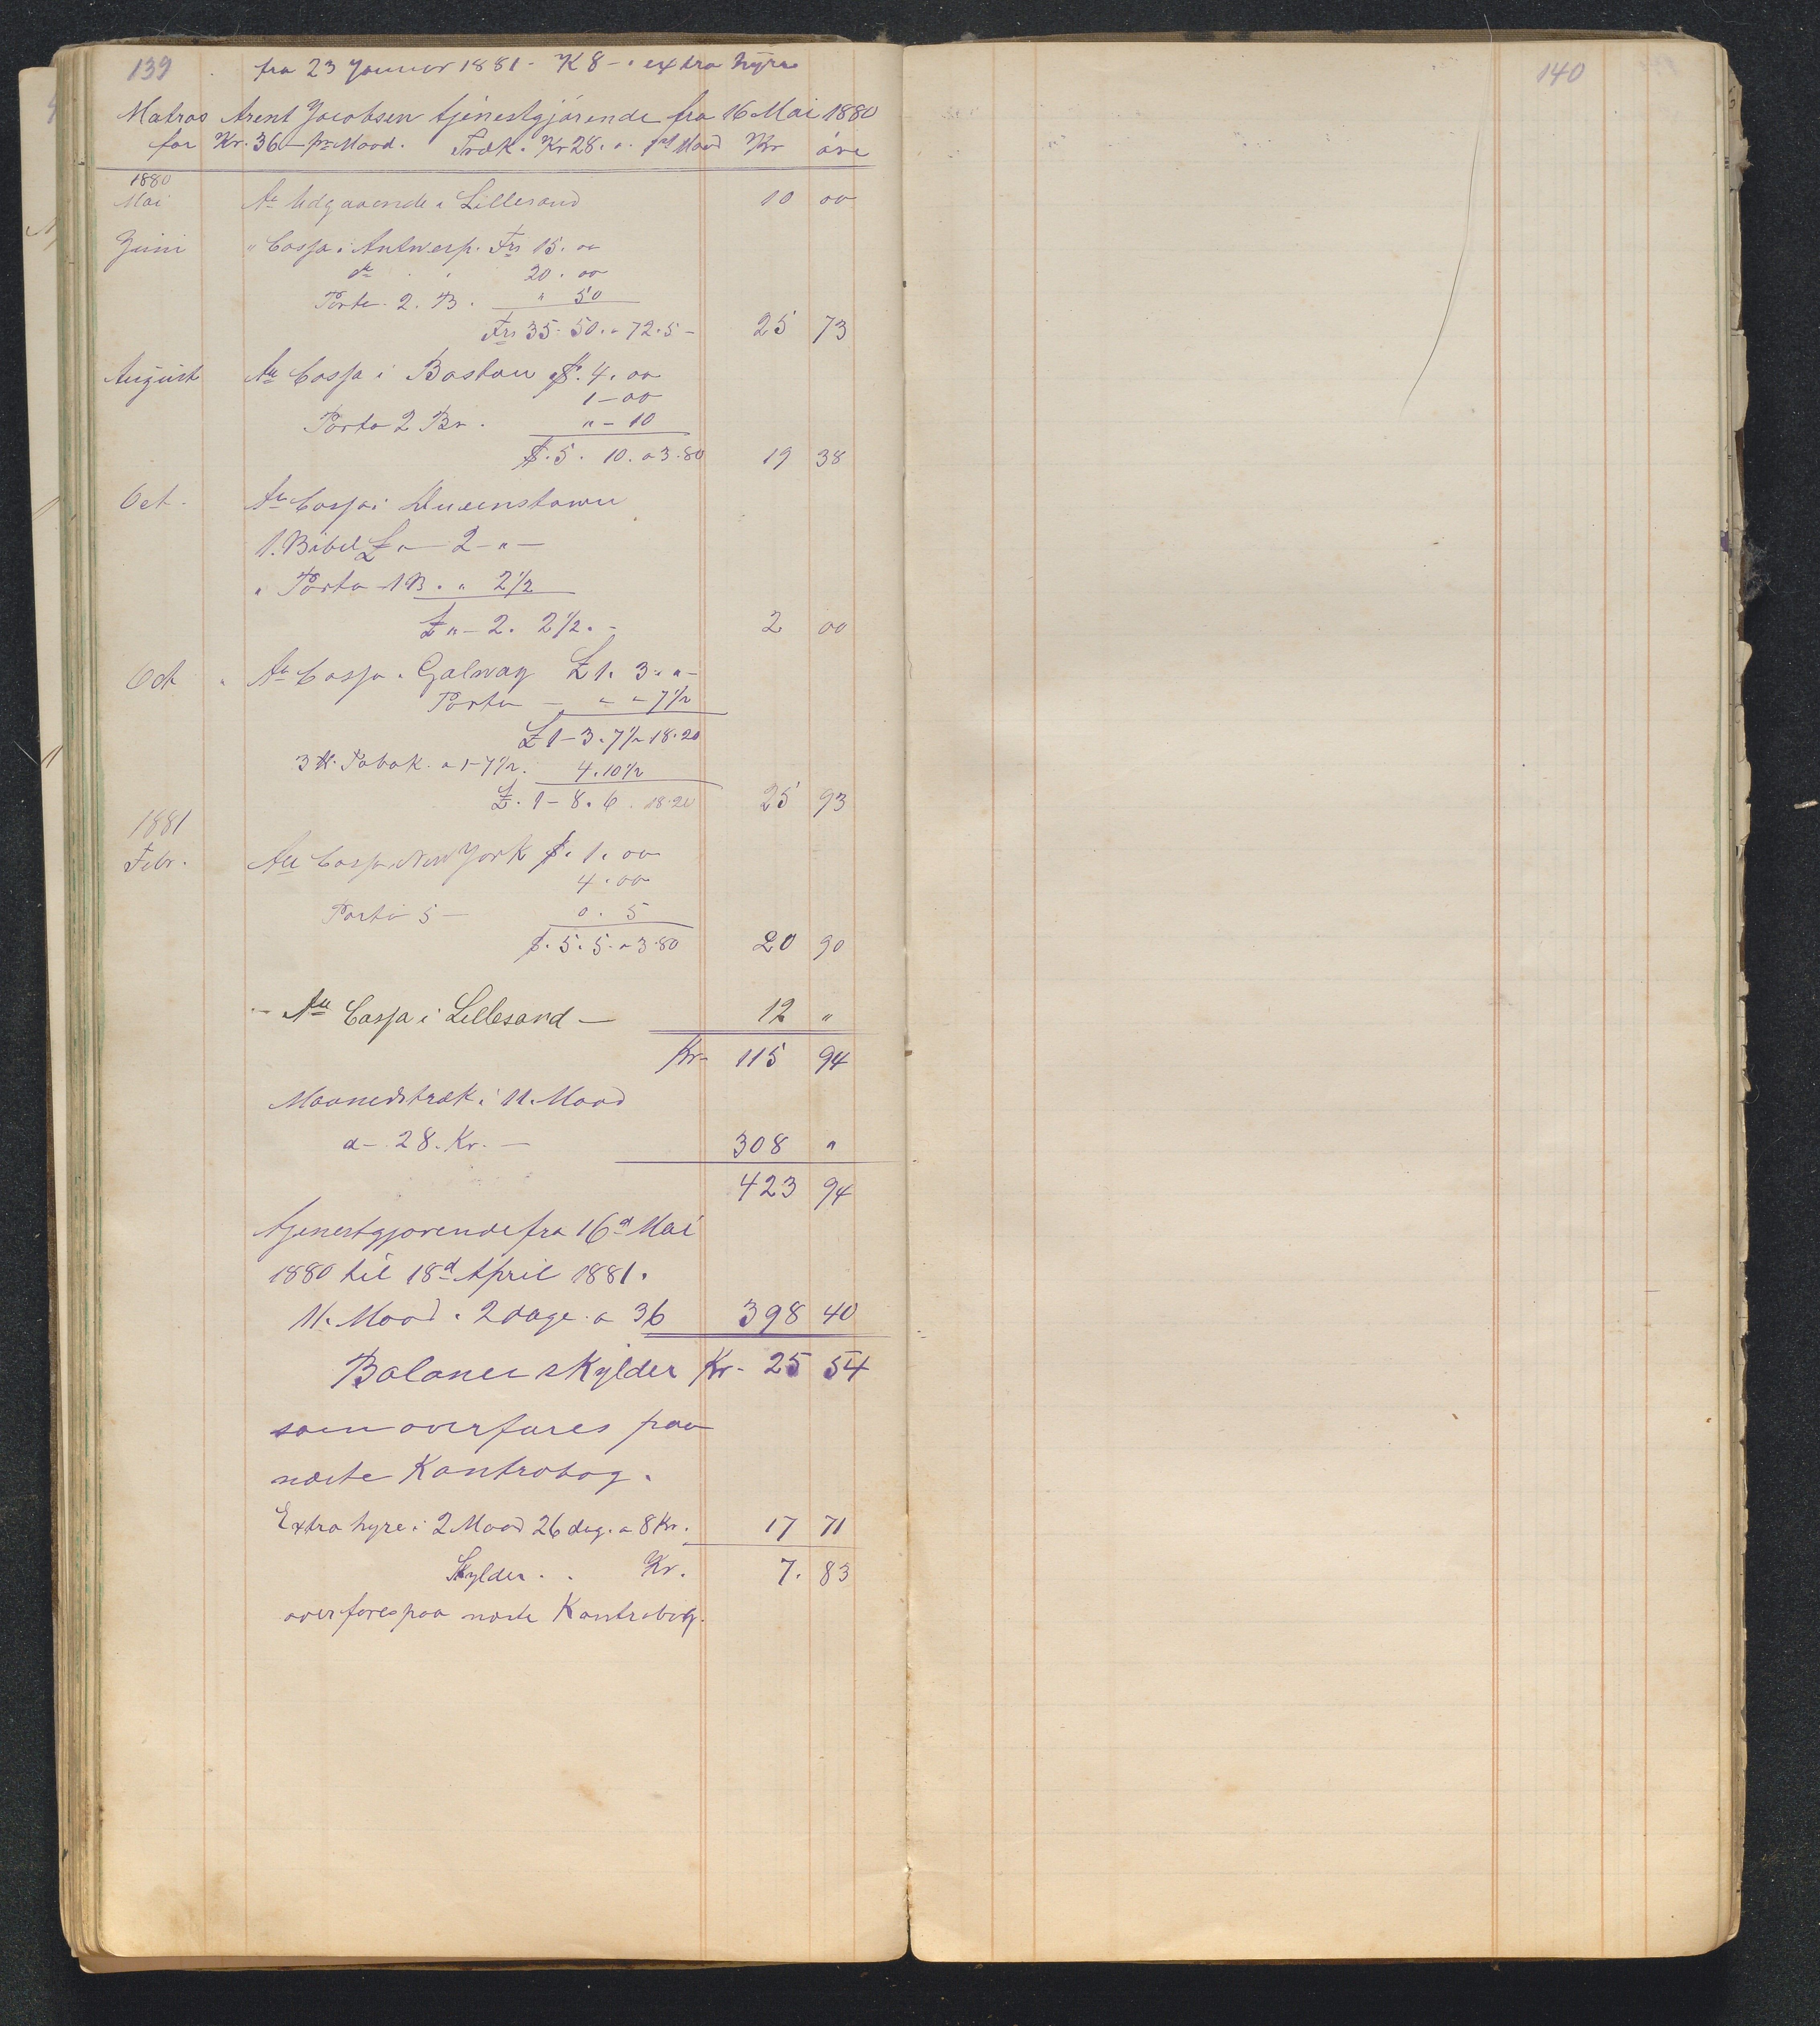 139 fra 23 Januar 1881 - K 8 - extra hyre
Matros Arent Jacobsen tjenestgjörende fra 16 Mai 1880
for Kr. 36 - pr Maad. Træk. Kr 28. " pr Maad Kr öre
1880
Mai An Udgaaende i Lillesand 10 00
Juni " Cassa i Antwerp. Frs 15. 00
do 20. 00
Porto. 2. B. " 50
Frs 35. 50. a 72.5 - 25 73
August An Cassa i Boston $. 4. 00
1 - 00
Porto 2 Br. " - 10
$. 5. 10. a 3.80 19 38
Oct. An Cassa i Queenstown
1. Bibel £ " - 2 - " -
" Porto - 1 B. " 2 1/2
£ " - 2. 2 1/2. - 2 00
Oct " An Cassa i Galway £ 1. 3. " -
Porto - " " 7 1/2
£ 1 - 3. 7 1/2 18.20
3 ℔. Tobak. a 1 - 7 1/2. 4. 10 1/2
£. 1 - 8. 6. 18.20 25 93
1881
Febr. An Cassa New York $. 1. 00
4. 00
Porto 5 - 0. 5
$. 5. 5. a 3.80 20 90
- An Cassa i Lillesand - 12 "
Kr - 115 94
Maanedstræk i 11. Maad
a - 28. Kr. - 308 "
423 94
tjenestgjorende fra 16d Mai
1880 til 18d April 1881.
11. Maad. 2 dage. a 36 398 40
Balance skylder Kr - 25 54
som overføres paa
næste Kontrabog.
Extra hyre i 2 Maad 26 dag. a 8 Kr. 17 71
Skylder. . Kr. 7. 83
overføres paa næste Kontrabog.
140